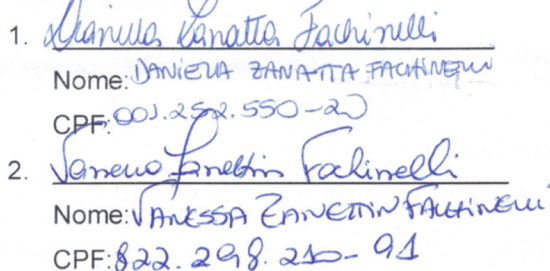 1. Daniella Zanatta Fachinelli
Nome: DANIELLA ZANATTA FACHINELLI
CPF: 001.252.550-20
2. Vanessa Zanettin Fachinelli
Nome: VANESSA ZANETTIN FACHINELLI
CPF: 822.298.210-91